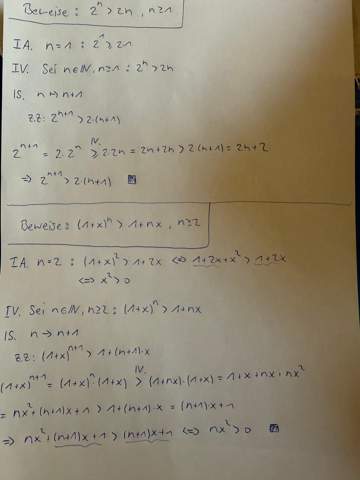 Beweise: 2^n > 2n , n≥1
IA. n=1 : 2^1 ≥ 2·1
IV. Sei n∈ℕ, n≥1 : 2^n > 2n
IS. n ↦ n+1
z.z: 2^{n+1} > 2·(n+1)
IV.
2^{n+1} = 2·2^n ≥ 2·2n = 2n+2n > 2·(n+1) = 2n+2
⇒ 2^{n+1} > 2·(n+1)
Beweise: (1+x)^n > 1+nx , n≥2
IA. n=2 : (1+x)^2 > 1+2x ⇔ 1+2x+x^2 > 1+2x
⇔ x^2 > 0
IV. Sei n∈ℕ, n≥2 : (1+x)^n > 1+nx
IS. n → n+1
z.z: (1+x)^{n+1} > 1+(n+1)·x
IV.
(1+x)^{n+1} = (1+x)^n·(1+x) > (1+nx)·(1+x) = 1+x+nx+nx^2
= nx^2+(n+1)x+1 > 1+(n+1)·x = (n+1)·x+1
⇒ nx^2+(n+1)x+1 > (n+1)x+1 ⇔ nx^2 > 0